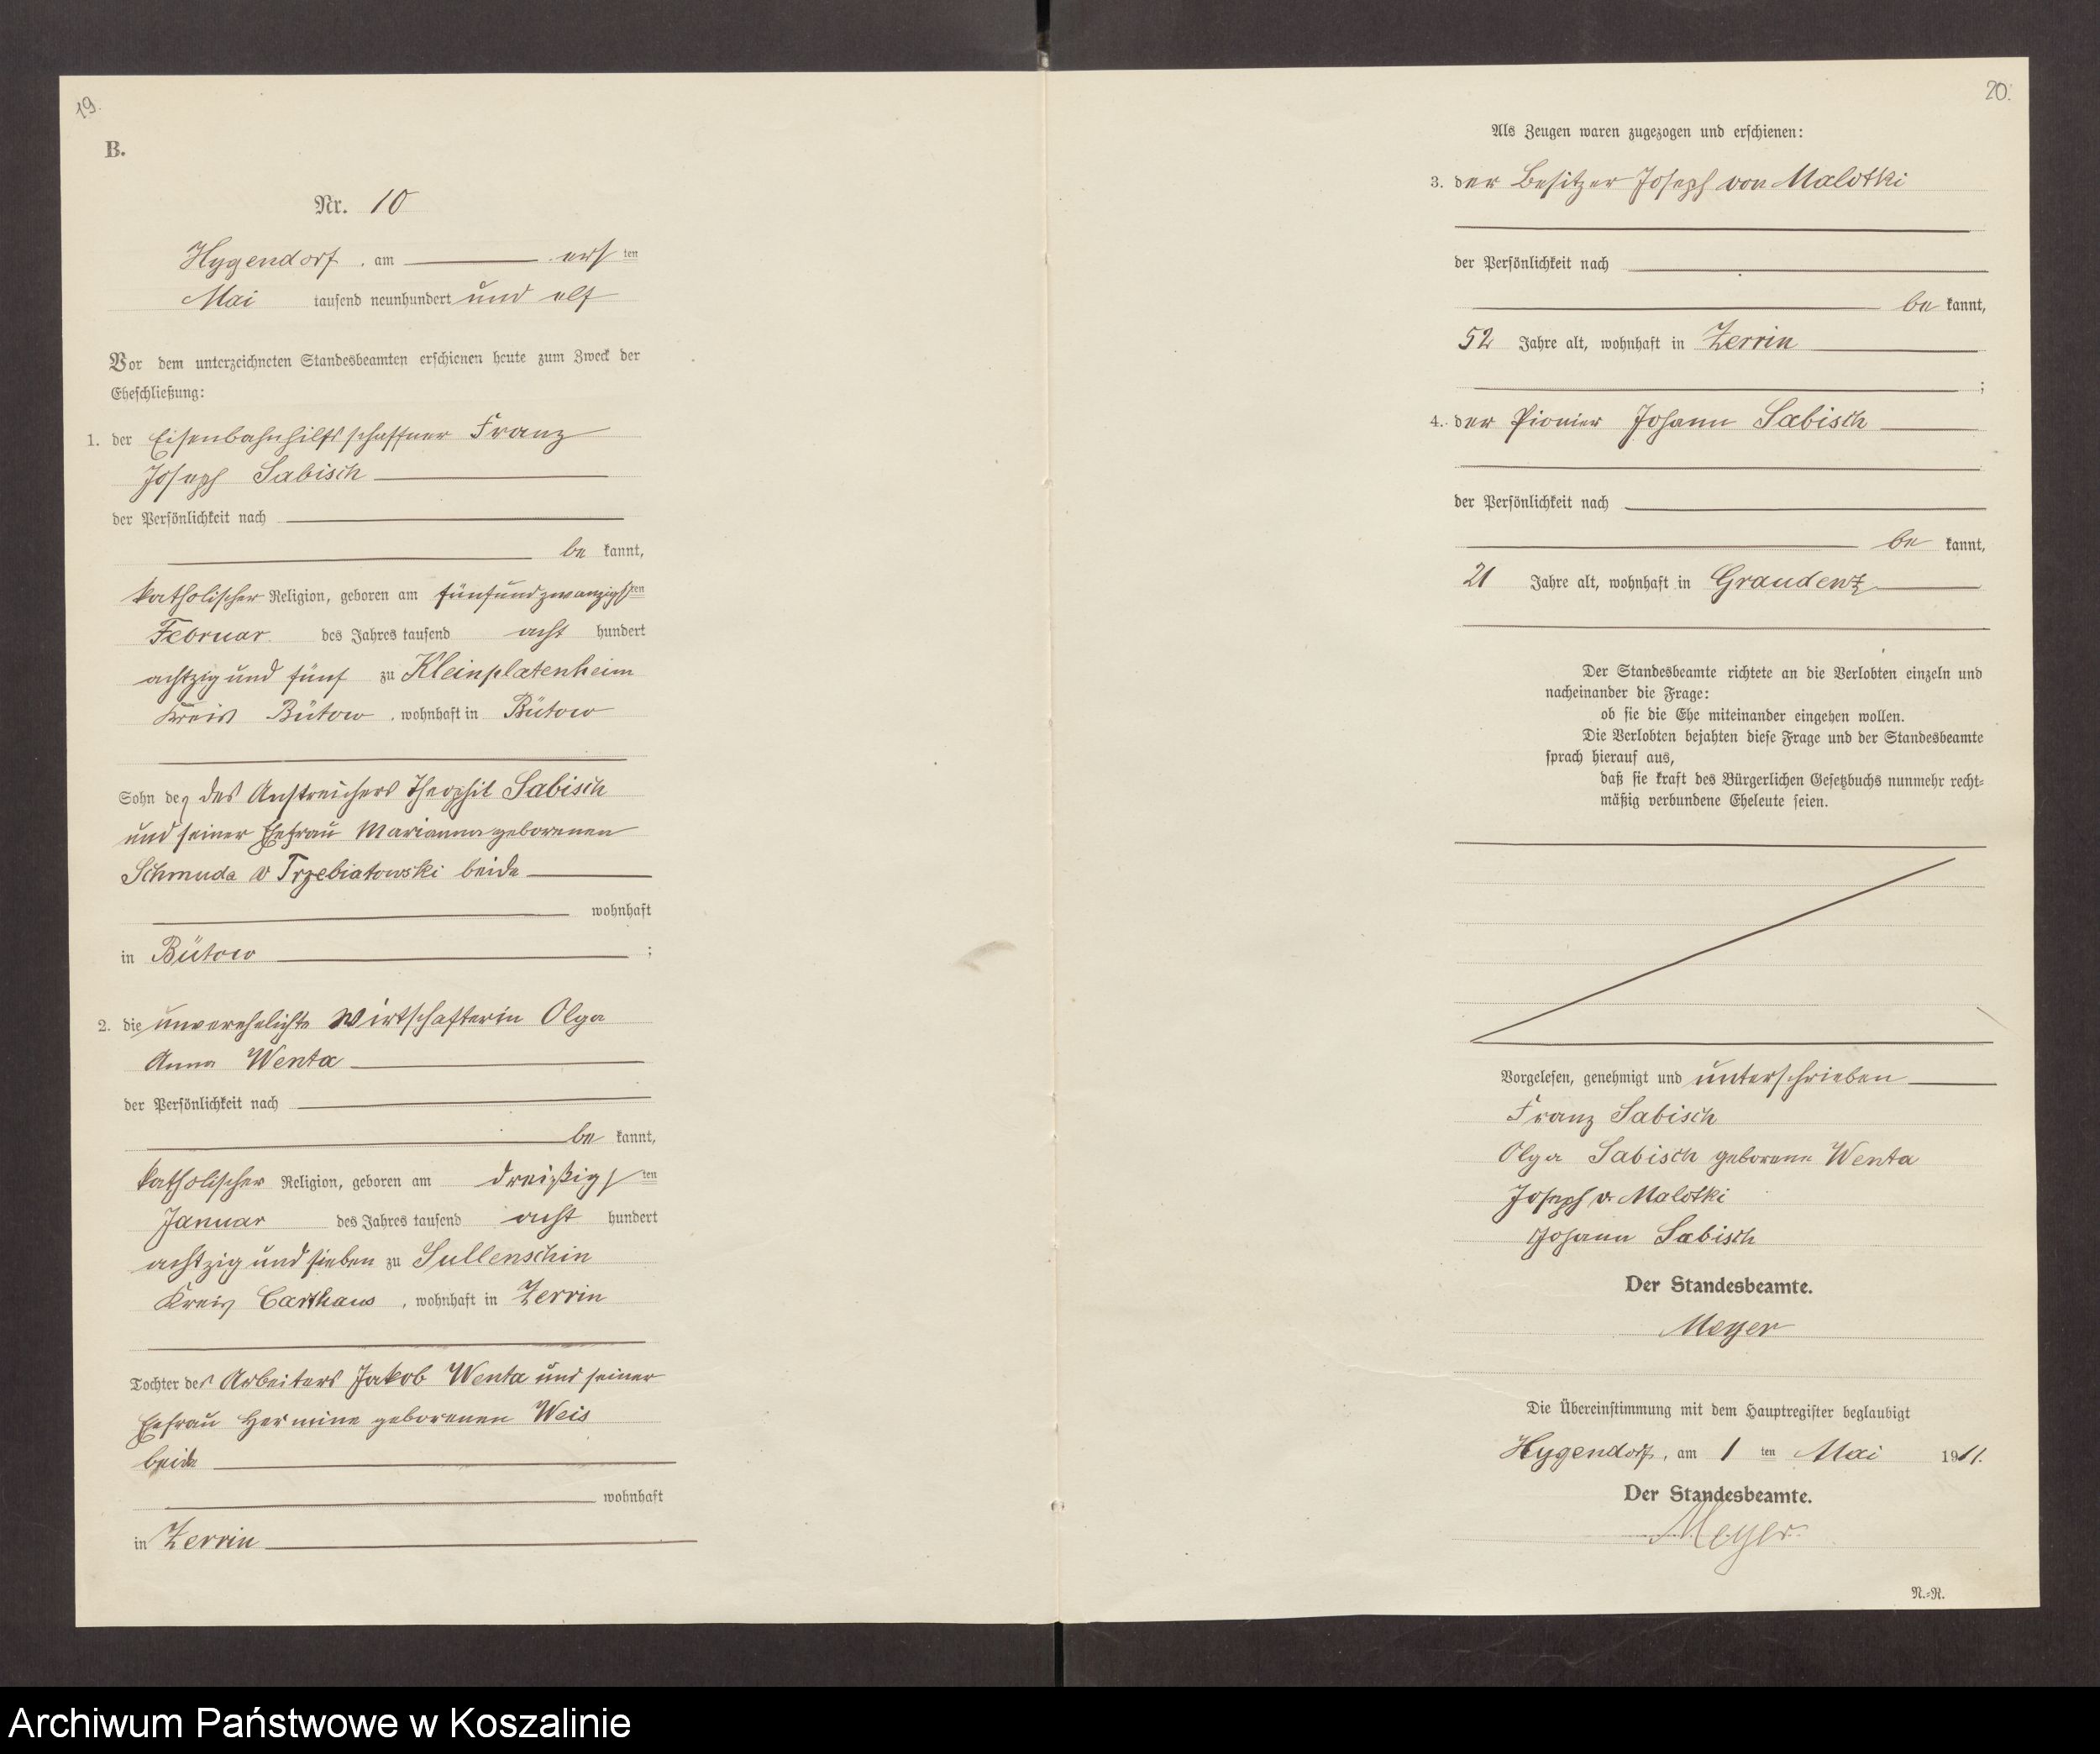 19.
B.
Nr. 10
Hygendorf, am ersten
Mai tausend neunhundert und elf
Vor dem unterzeichneten Standesbeamten erschienen heute zum Zweck der
Eheschließung:
1. der Eisenbahnhilfsschaffner Franz
Joseph Sabisch
der Persönlichkeit nach
be kannt,
katholischer Religion, geboren am fünfundzwanzigsten
Februar des Jahres tausend acht hundert
achtzig und fünf zu Kleinplatenheim
Kreis Bütow, wohnhaft in Bütow
Sohn des Anstreichers Theophil Sabisch
und seiner Ehefrau Marianna geborenen
Schmuda v Trzebiatowski beide
wohnhaft
in Bütow ;
2. die unverehelichte Wirtschafterin Olga
Anna Wenta
der Persönlichkeit nach
be kannt,
katholischer Religion, geboren am dreißigsten
Januar des Jahres tausend acht hundert
achtzig und sieben zu Sullenschin
Kreis Carthaus, wohnhaft in Zerrin
Tochter des Arbeiters Jakob Wenta und seiner
Ehefrau Hermine geborenen Weis
beide
wohnhaft
in Zerrin
20.
Als Zeugen waren zugezogen und erschienen:
3. der Besitzer Joseph von Malotki
der Persönlichkeit nach
be kannt,
52 Jahre alt, wohnhaft in Zerrin
;
4. der Pionier Johann Sabisch
der Persönlichkeit nach
be kannt,
21 Jahre alt, wohnhaft in Graudenz
Der Standesbeamte richtete an die Verlobten einzeln und
nacheinander die Frage:
ob sie die Ehe miteinander eingehen wollen.
Die Verlobten bejahten diese Frage und der Standesbeamte
sprach hierauf aus,
daß sie kraft des Bürgerlichen Gesetzbuchs nunmehr recht-
mäßig verbundene Eheleute seien.
Vorgelesen, genehmigt und unterschrieben
Franz Sabisch
Olga Sabisch geborene Wenta
Joseph v. Malotki
Johann Sabisch
Der Standesbeamte.
Meyer
Die Übereinstimmung mit dem Hauptregister beglaubigt
Hygendorf, am 1 ten Mai 1911.
Der Standesbeamte.
Meyer
N.-R.
Archiwum Państwowe w Koszalinie